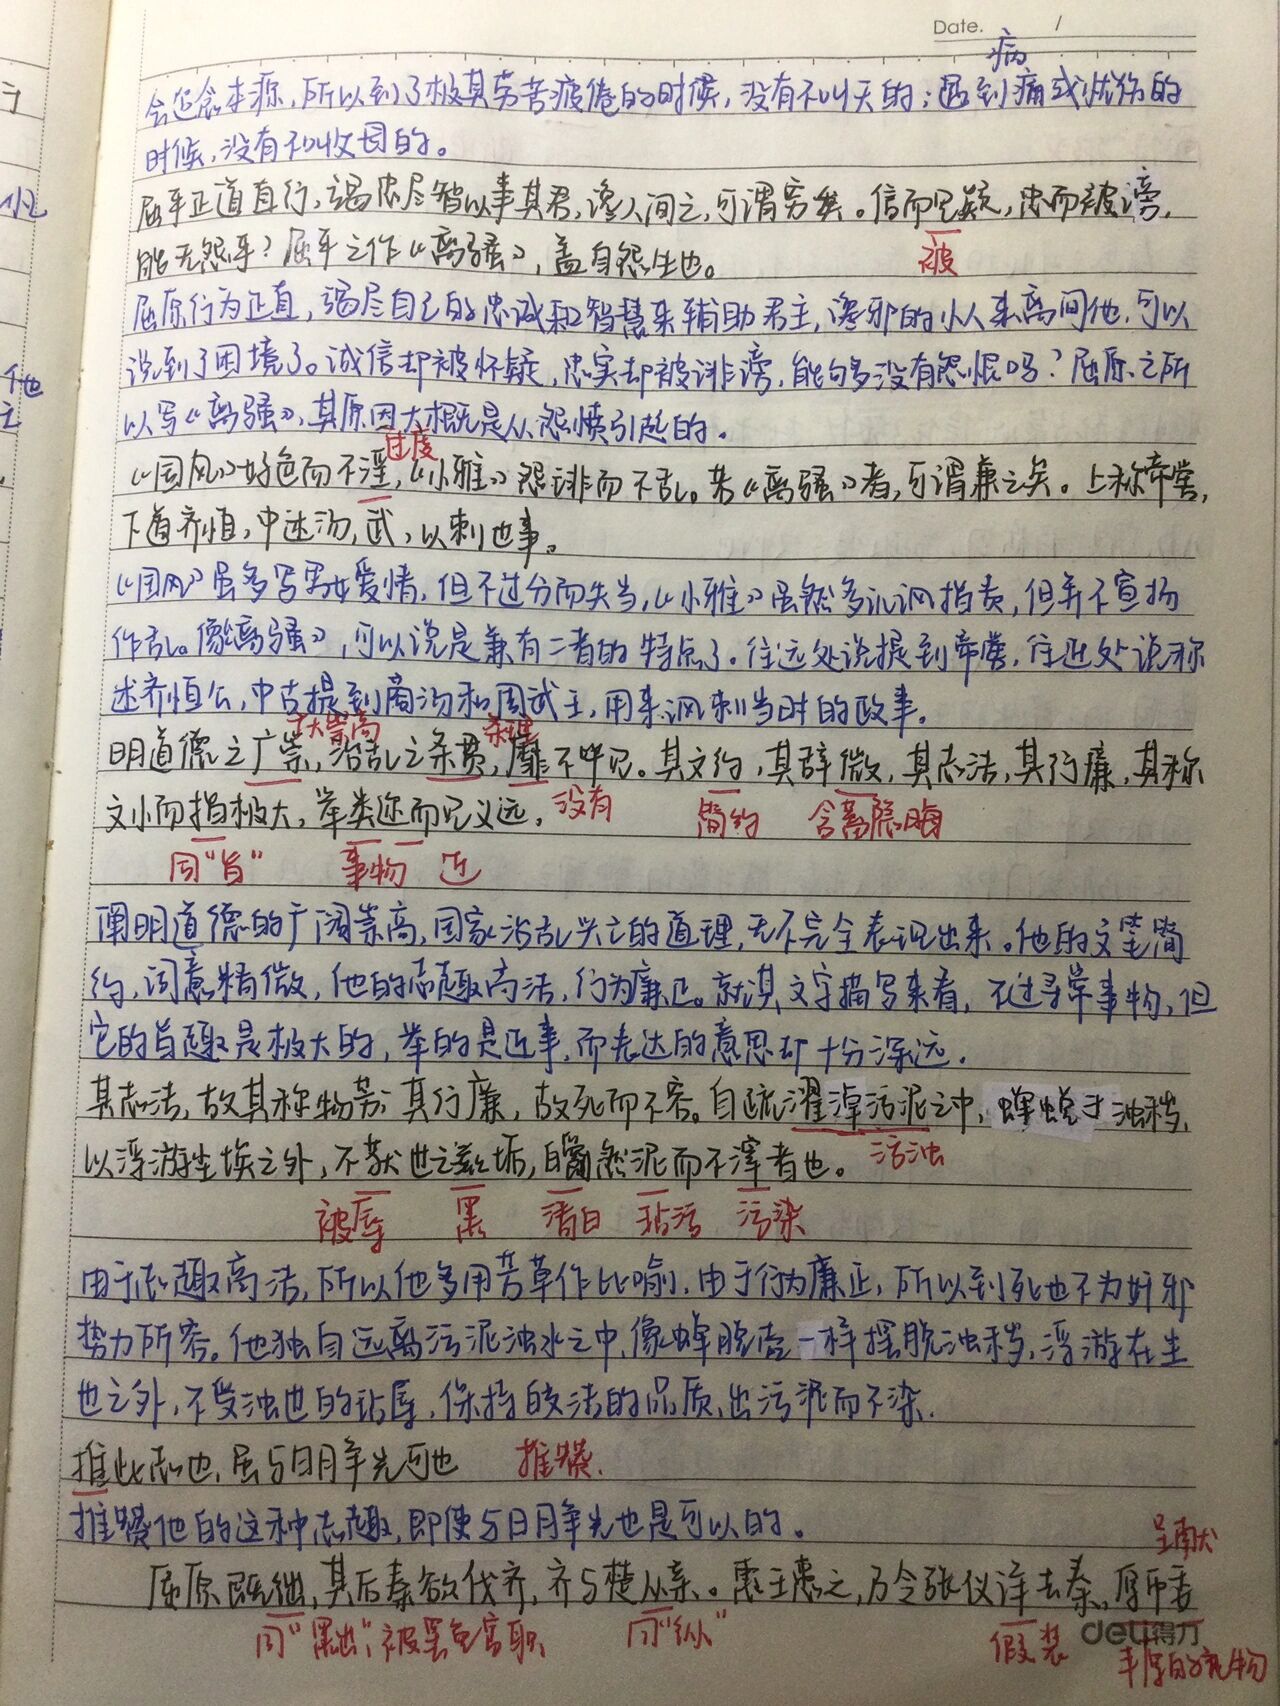 Date. /
病
会追念本源,所以到了极其劳苦疲倦的时候,没有不叫天的;遇到痛或忧伤的
时候,没有不叫父母的。
屈平正道直行,竭忠尽智以事其君,谗人间之,可谓穷矣。信而见疑,忠而被谤,
被
能无怨乎?屈平之作《离骚》,盖自怨生也。
屈原行为正直,竭尽自己的忠诚和智慧来辅助君主,谗邪的小人来离间他,可以
说到了困境了。诚信却被怀疑,忠实却被诽谤,能够多没有怨恨吗?屈原之所
以写《离骚》,其原因大概是从怨愤引起的。
过度
《国风》好色而不淫,《小雅》怨诽而不乱。若《离骚》者,可谓兼之矣。上称帝喾,
下道齐恒,中述汤,武,以刺世事。
《国风》虽多写男女爱情,但不过分而失当,《小雅》虽然多讥讽指责,但并不宣扬
作乱。像《离骚》,可以说是兼有二者的特点了。往远处说提到帝喾,往近处说称
述齐恒公,中古提到商汤和周武王,用来讽刺当时的政事。
扩大崇高 条理
明道德之广崇,治乱之条贯,靡不毕见。其文约,其辞微,其志洁,其行廉,其称
没有 简约 含蓄隐晦
文小而指极大,举类迩而见义远。
同“旨” 事物 近
阐明道德的广阔崇高,国家治乱兴亡的道理,无不完全表现出来。他的文笔简
约,词意精微,他的志趣高洁,行为廉正。就其文字描写来看,不过寻常事物,但
它的旨趣是极大的,举的是近事,而表达的意思却十分深远。
其志洁,故其称物芳;其行廉,故死而不容。自疏濯淖污泥之中,蝉蜕于浊秽,
污浊
以浮游尘埃之外,不获世之滋垢,皭然泥而不滓者也。
被辱 黑 洁白 玷污 污染
由于志趣高洁,所以他多用芳草作比喻,由于行为廉正,所以到死也不为奸邪
势力所容。他独自远离污泥浊水之中,像蝉脱壳一样摆脱浊秽,浮游在尘
世之外,不受浊世的玷辱,保持皎洁的品质,出污泥而不染.
推此志也,虽与日月争光可也 推赞.
推赞他的这种志趣,即使与日月争光也是可以的。
呈献
屈原既绌,其后秦欲伐齐,齐与楚从亲。惠王患之,乃令张仪详去秦,厚币委
同“黜”,被罢免官职 同“纵” 假装 丰厚的礼物
deli得力